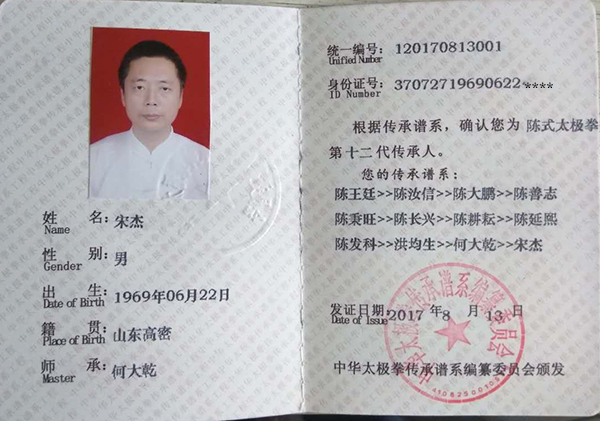 姓 名: 宋杰
Name
性 别: 男
Gender
出 生: 1969年06月22日
Date of Birth
籍 贯: 山东高密
Place of Birth
师 承: 何大乾
Master
统一编号: 120170813001
Unified Number
身份证号: 37072719690622****
ID Number
根据传承谱系,确认您为 陈式太极拳
第十二代传承人。
您的传承谱系:
陈王廷>>陈汝信>>陈大鹏>>陈善志
陈秉旺>>陈长兴>>陈耕耘>>陈延熙
陈发科>>洪均生>>何大乾>>宋杰
发证日期: 2017 年 8 月 13 日
Date of Issue
中华太极拳传承谱系编纂委员会颁发
中华太极拳传承谱系编纂委员会